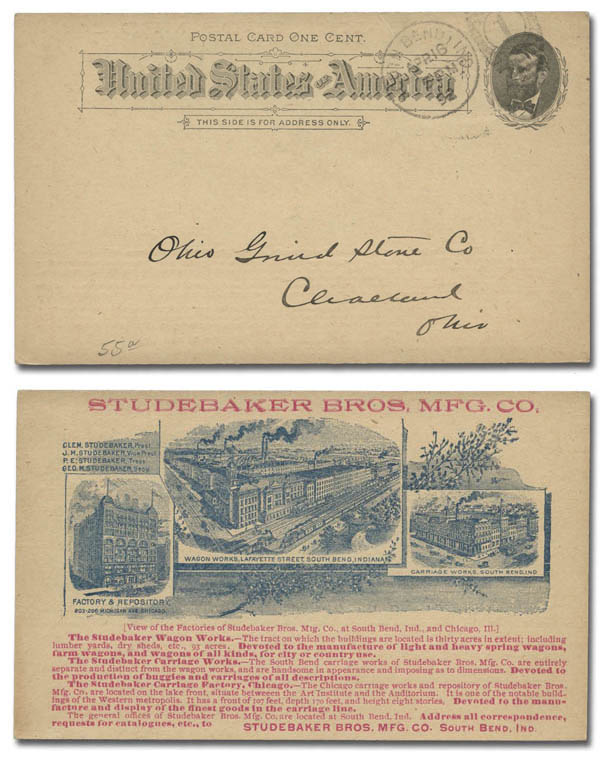 POSTAL CARD ONE CENT.
United States of America
THIS SIDE IS FOR ADDRESS ONLY.
BEND IND.
1
Ohio Grind Stone Co
Cleveland
Ohio
55a
STUDEBAKER BROS. MFG. CO.
CLEM. STUDEBAKER, Prest.
J. M. STUDEBAKER, Vice Prest.
P. E. STUDEBAKER, Treas.
GEO. M. STUDEBAKER, Secy.
WAGON WORKS, LAFAYETTE STREET, SOUTH BEND, INDIANA.
CARRIAGE WORKS, SOUTH BEND, IND
FACTORY & REPOSITORY,
203-206 MICHIGAN AVE. CHICAGO.
[View of the Factories of Studebaker Bros. Mfg. Co., at South Bend, Ind., and Chicago, Ill.]
The Studebaker Wagon Works.—The tract on which the buildings are located is thirty acres in extent; including
lumber yards, dry sheds, etc., 93 acres. Devoted to the manufacture of light and heavy spring wagons,
farm wagons, and wagons of all kinds, for city or country use.
The Studebaker Carriage Works.—The South Bend carriage works of Studebaker Bros. Mfg. Co. are entirely
separate and distinct from the wagon works, and are handsome in appearance and imposing as to dimensions. Devoted to
the production of buggies and carriages of all descriptions.
The Studebaker Carriage Factory, Chicago.—The Chicago carriage works and repository of Studebaker Bros.
Mfg. Co. are located on the lake front, situate between the Art Institute and the Auditorium. It is one of the notable build-
ings of the Western metropolis. It has a front of 107 feet, depth 170 feet, and height eight stories. Devoted to the manu-
facture and display of the finest goods in the carriage line.
The general offices of Studebaker Bros. Mfg. Co. are located at South Bend, Ind. Address all correspondence,
requests for catalogues, etc., to STUDEBAKER BROS. MFG. CO. SOUTH BEND, IND.